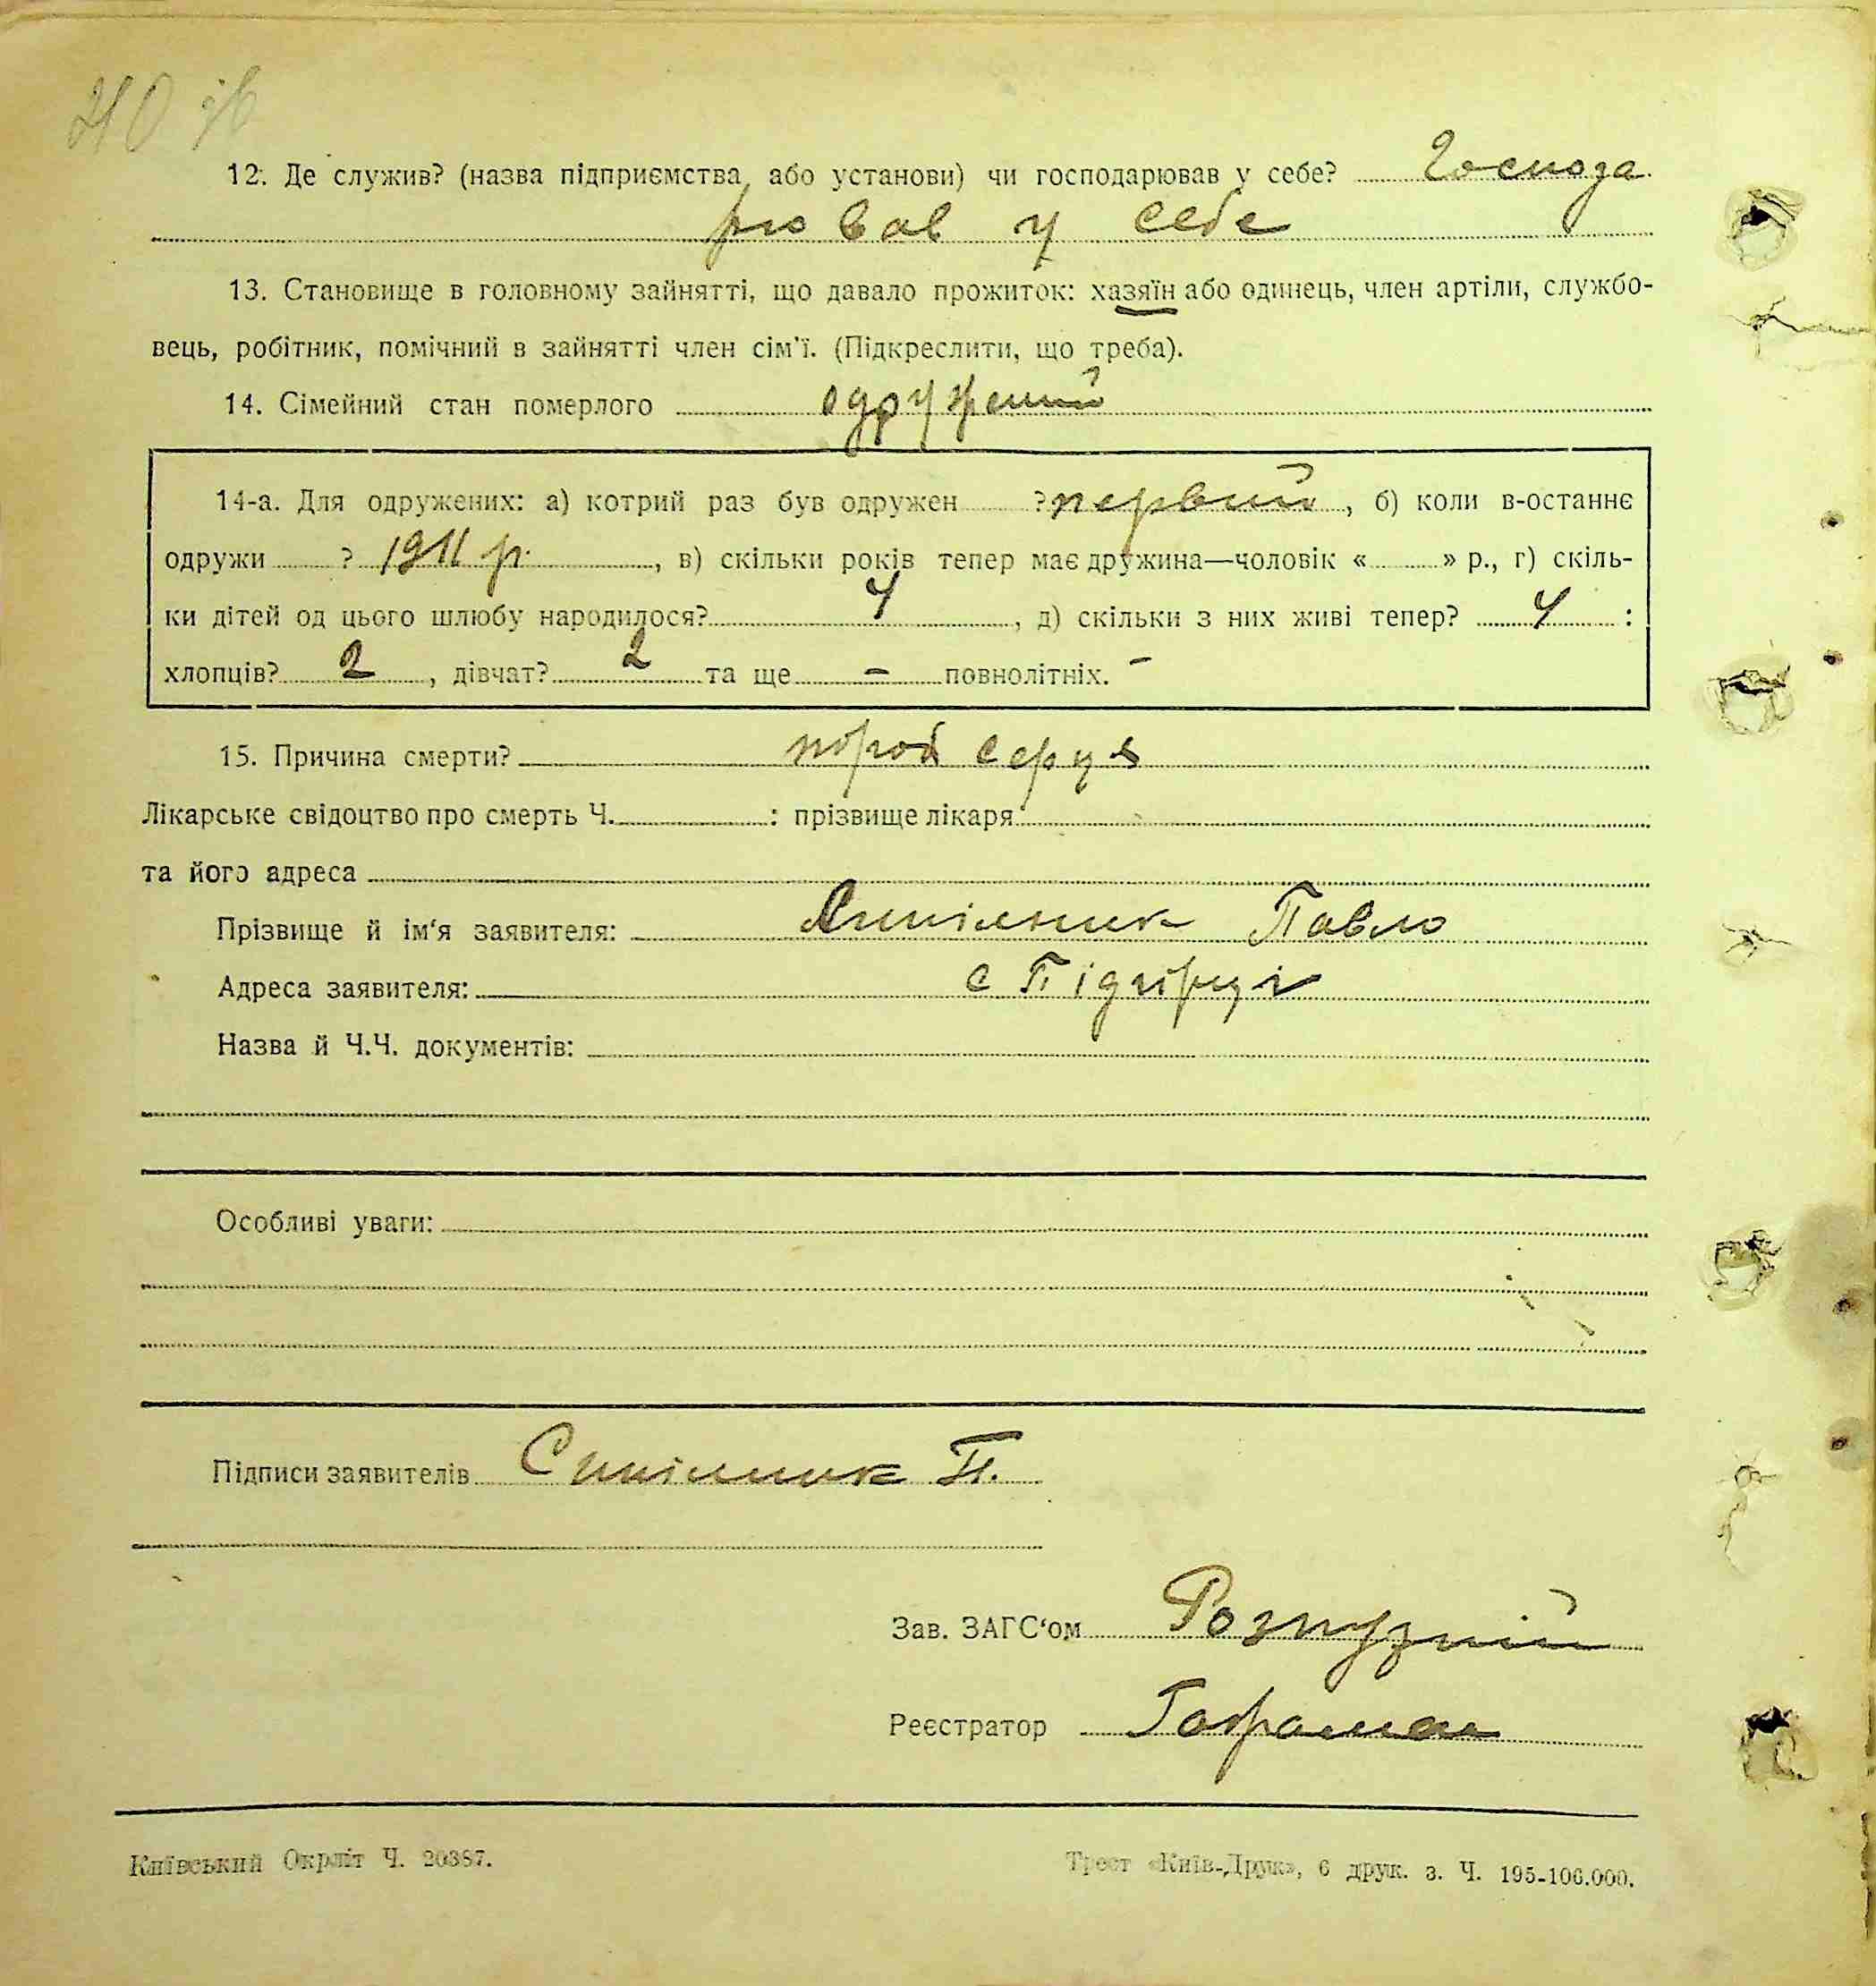 210 зв
12. Де служив? (назва підприємства, або установи) чи господарював у себе? Господа
рював у себе
13. Становище в головному зайнятті, що давало прожиток: хазяїн або одинець, член артіли, службо-
вець, робітник, помічний в зайнятті член сім'ї. (Підкреслити, що треба).
14. Сімейний стан померлого одружений
14-а. Для одружених: а) котрий раз був одружен ? первий, б) коли в-останнє
одружи ? 1911 р., в) скільки років тепер має дружина—чоловік « » р., г) скіль-
ки дітей од цього шлюбу народилося? 4, д) скільки з них живі тепер? 4 :
хлопців? 2, дівчат? 2 та ще - повнолітніх. -
15. Причина смерти? порок серця
Лікарське свідоцтво про смерть Ч. : прізвище лікаря
та його адреса
Прізвище й ім'я заявителя: Павло
Адреса заявителя: с Підгірці
Назва й Ч.Ч. документів:
Особливі уваги:
Підписи заявителів П.
Зав. ЗАГС'ом
Реєстратор
Київський Окрліт Ч. 20387.
Трест «Київ-Друк», 6 друк. з. Ч. 195-100.000.